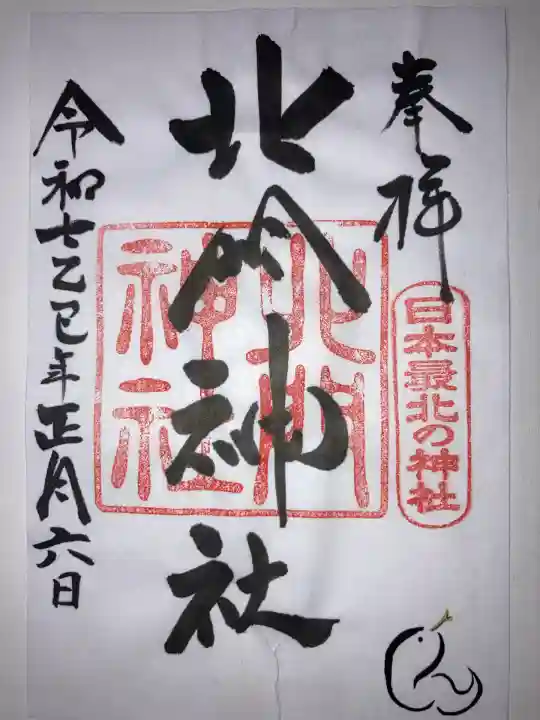 奉拝
日本最北の神社
北門神社
北門
神社
令和七乙巳年正月六日